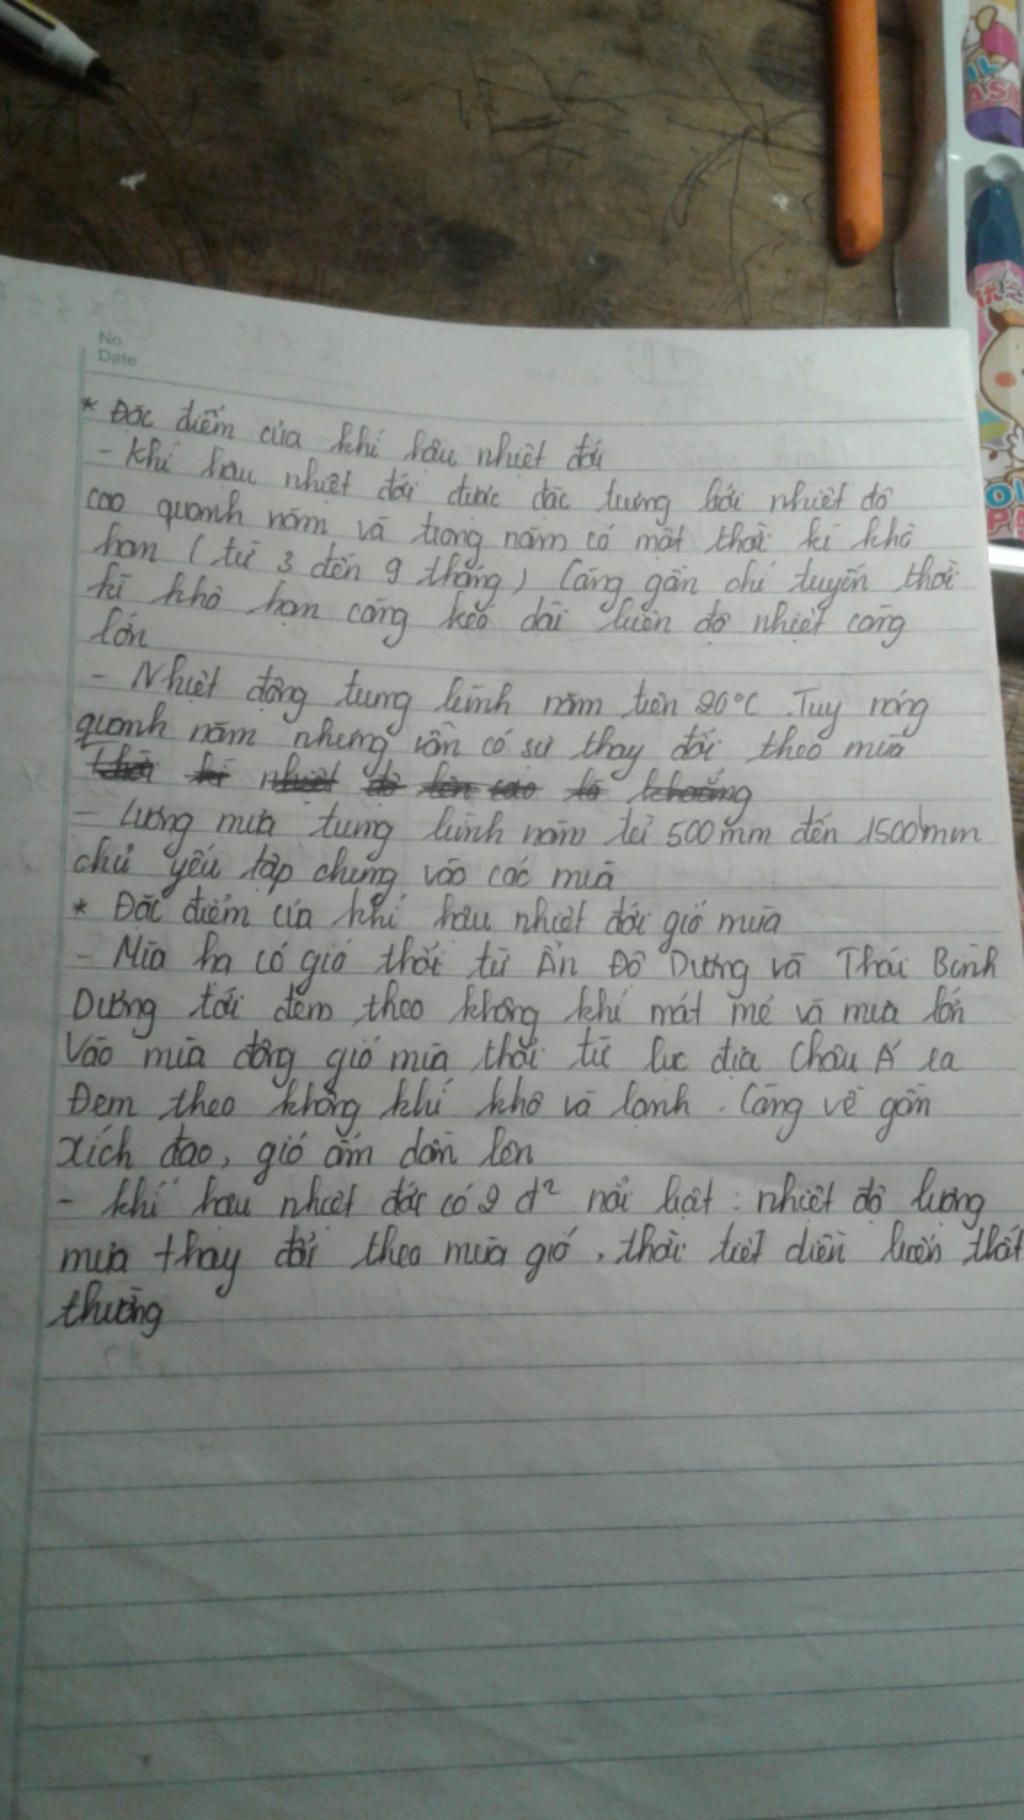 No.
Date
* Đặc điểm của khí hậu nhiệt đới
- Khí hậu nhiệt đới được đặc trưng bởi nhiệt độ
cao quanh năm và trong năm có một thời kì khô
hạn ( từ 3 đến 9 tháng) Càng gần chí tuyến thời
kì khô hạn càng kéo dài biên độ nhiệt càng
lớn
- Nhiệt động trung bình năm trên 20°C. Tuy nóng
quanh năm nhưng vẫn có sự thay đổi theo mùa
thời kì nhiệt độ lên cao là khoảng
- Lượng mưa trung bình năm từ 500mm đến 1500mm
chủ yếu tập chung vào các mùa
* Đặc điểm của khí hậu nhiệt đới gió mùa
- Mùa hạ có gió thổi từ Ấn Độ Dương và Thái Bình
Dương tới đem theo không khí mát mẻ và mưa lớn
Vào mùa đông gió mùa thổi từ lục địa Châu Á ra
Đem theo không khí khô và lạnh. Càng về gần
xích đạo, gió ấm dần lên
- khí hậu nhiệt đới có 2 đ² nổi bật: nhiệt độ lượng
mưa thay đổi theo mùa gió, thời tiết diễn biến thất
thường